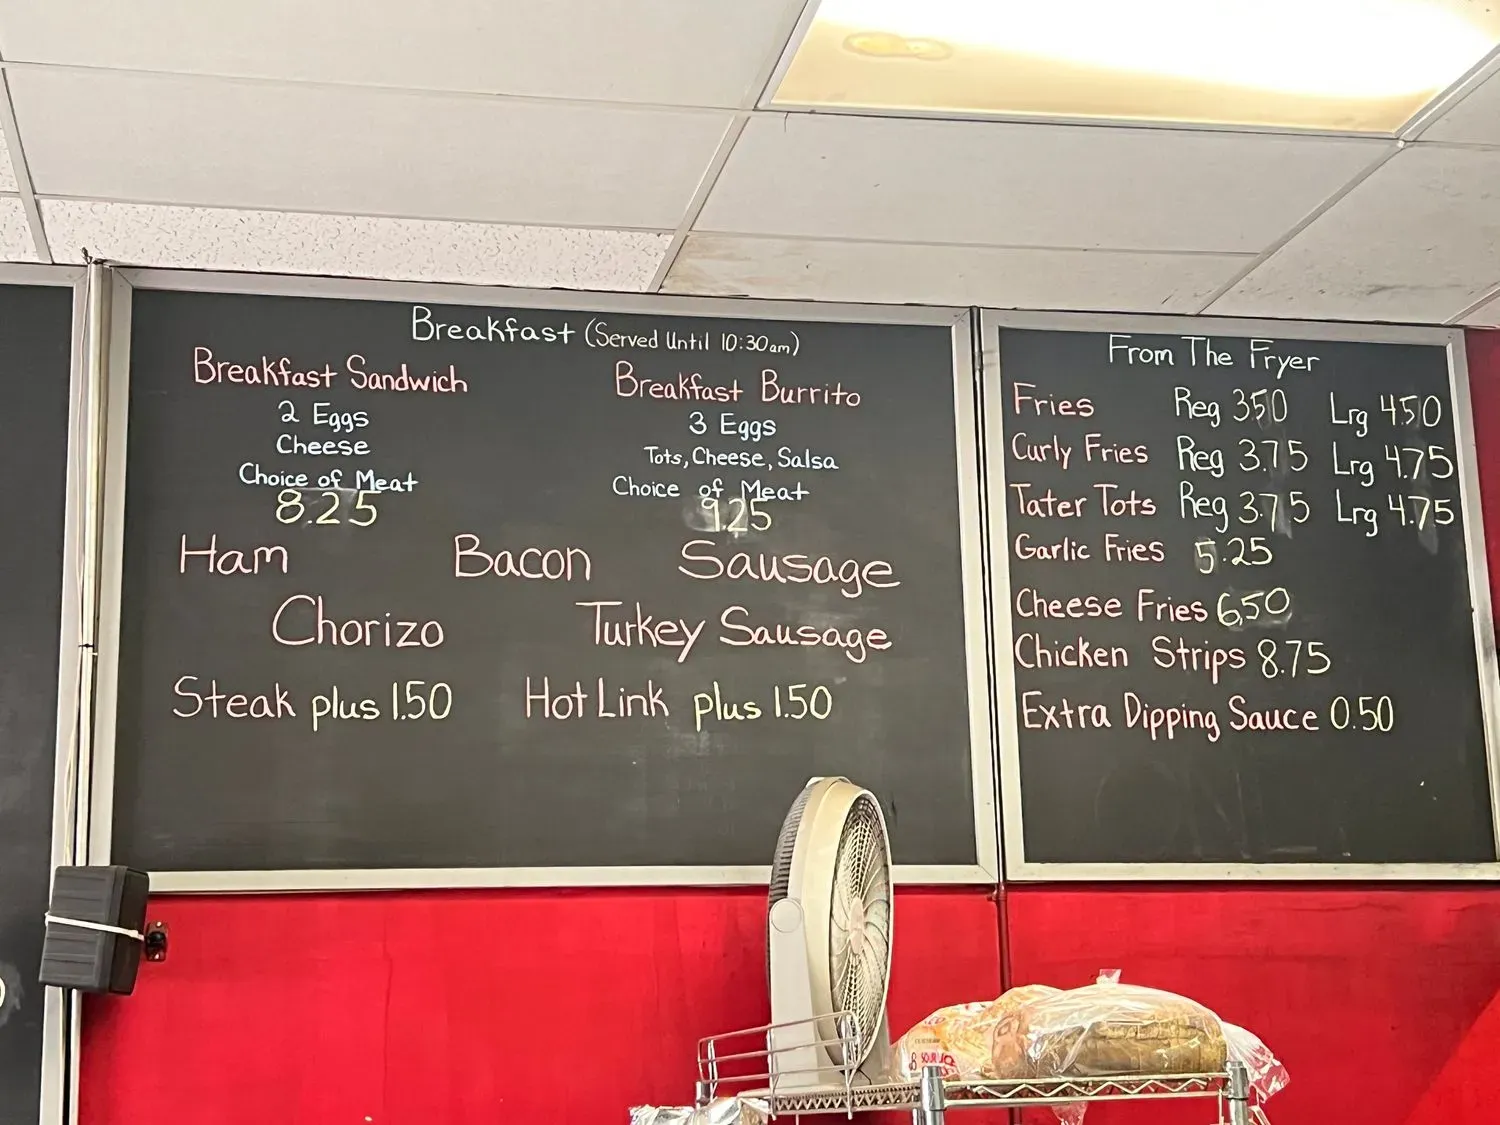 Breakfast (Served Until 10:30am)
Breakfast Sandwich
2 Eggs
Cheese
Choice of Meat
8.25
Breakfast Burrito
3 Eggs
Tots, Cheese, Salsa
Choice of Meat
9.25
Ham Bacon Sausage
Chorizo Turkey Sausage
Steak plus 1.50 Hot Link plus 1.50
From The Fryer
Fries Reg 3.50 Lrg 4.50
Curly Fries Reg 3.75 Lrg 4.75
Tater Tots Reg 3.75 Lrg 4.75
Garlic Fries 5.25
Cheese Fries 6.50
Chicken Strips 8.75
Extra Dipping Sauce 0.50